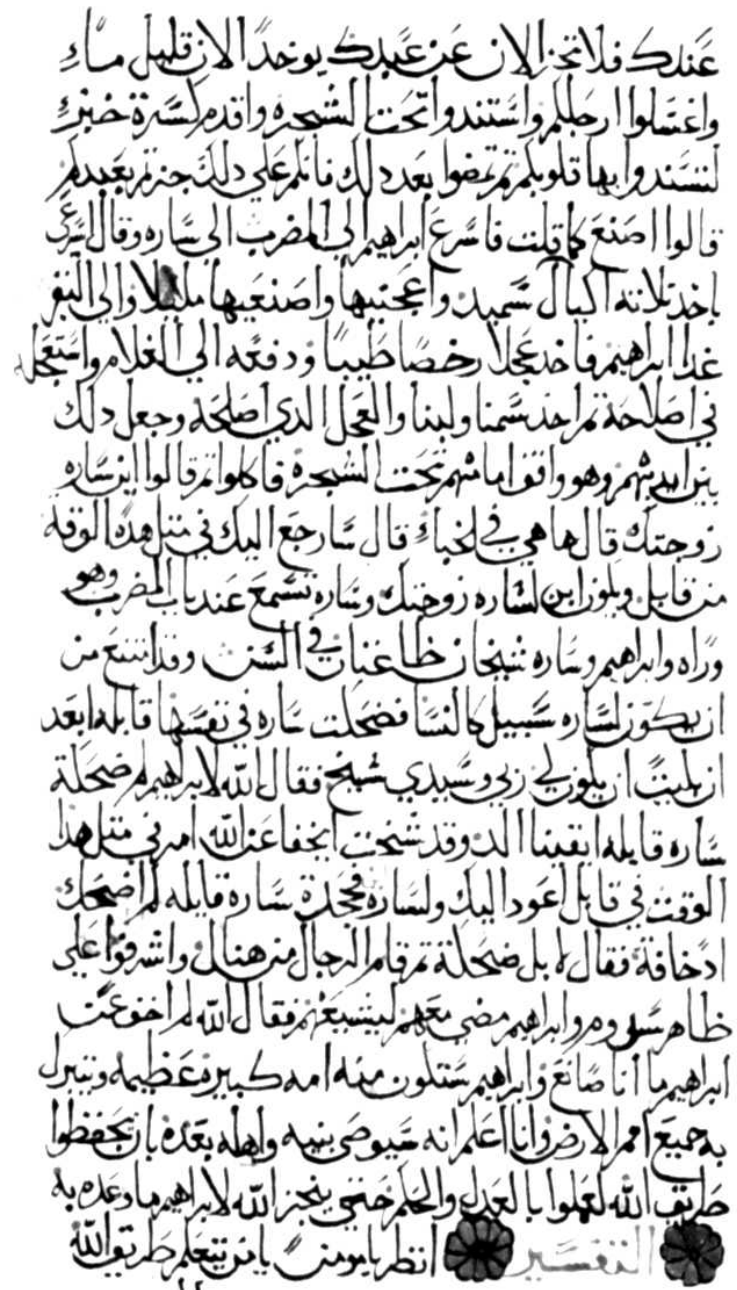 عندك فلا تجز الان عن عبدك يوخد الان قليل ماء
واغسلوا ارجلكم واستندوا تحت الشجره واقدم كسرة خبز
لتسندوا بها قلوبكم ثم تمضوا بعد دلك فانكم علي دلك جزتم بعبدكم
قالوا اصنع كما قلت فاسرع ابراهيم الي المضرب الي ساره وقال اسرعي
باخد تلاته اكيال سميد واعجنيها واصنعيها مليلا والي البقر
غدا ابراهيم فاخد عجلا رخصا طيبا ودفعه الي الغلام واستعجله
في اصلاحة تم اخد سمنا ولبنا والعجل الدي اصلحه وجعل دلك
بين ايديهم وهو واقف امامهم تحت الشجره فاكلوا تم قالوا اين ساره
زوجتك قال ها هي في الخباء قال سارجع اليك في متل هدا الوقت
من قابل ويكون ابن لساره زوجتك وساره تسمع عند باب المضرب وهو
وراه وابراهيم وساره شيخان طاعنان في السن وقد امتنع من
ان يكون لساره سبيل كالنسا فضحكت ساره في نفسها قايله ابعد
ان بليت ان يكون لي زي وسيدي شيخ فقال الله لابراهيم لم ضحكة
ساره قايله ايقينا الد وقد شخت ايخفا عن الله امر في متل هدا
الوقت في قابل اعود اليك ولساره فجحدة ساره قايله لم اضحك
اد خافة فقال لا بل ضحكة تم قام الرجال من هناك واشرفوا علي
ظاهر سدوم وابراهيم مضي معهم ليشيعهم فقال الله لم اخفو عن
ابراهيم ما انا صانع وابراهيم ستكون منه امه كبيره عظيمه ويتبرك
به جميع امم الارض وانا اعلم انه سيوصي بنيه واهله بعده بان يحفظوا
طريق الله ليعملوا بالعدل والحكم حتي ينجز الله لابراهيم ما وعده به
التفسير انظر يا يومن يا من يتعلم طريق الله